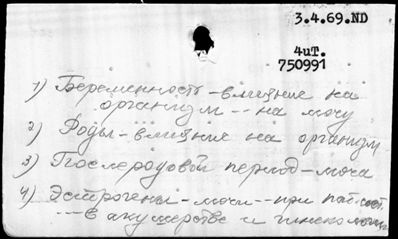 3.4.69.ND
4иТ.
750991
1) Беременность - влияние на
организм -- на мочу
2) Роды - влияние на организм
3) Послеродовой период - моча
4) Эстрогены - мочи -- при пат. сост.
--- в акушерстве и гинекологии